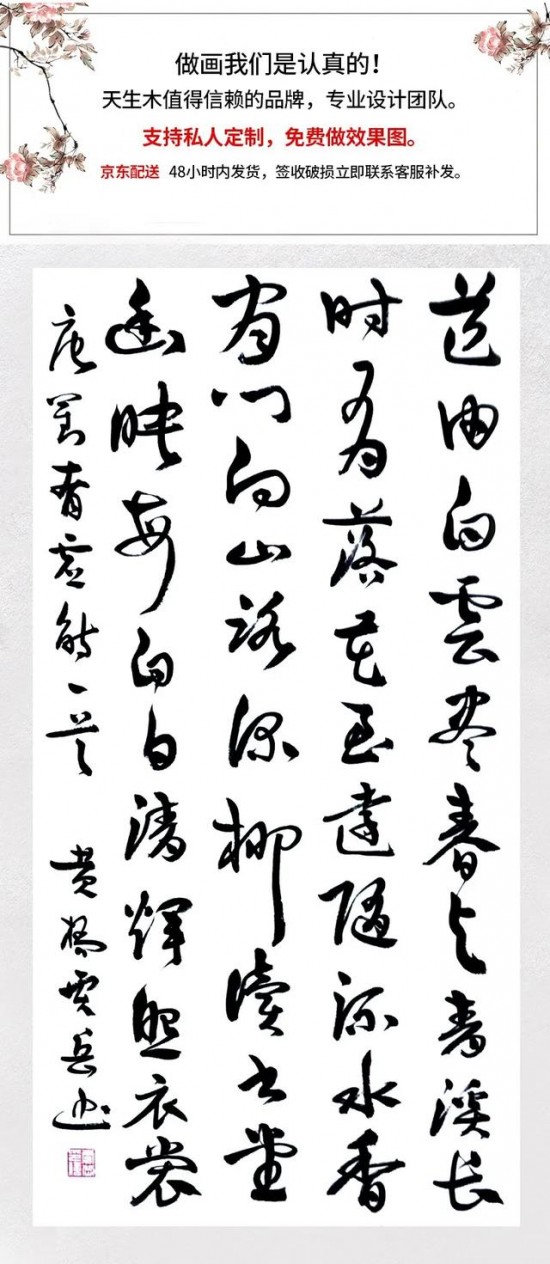 做画我们是认真的！
天生木值得信赖的品牌，专业设计团队。
支持私人定制，免费做效果图。
京东配送 48小时内发货，签收破损立即联系客服补发。
道由白雲尽春与青溪长
时有落花至遠随流水香
闲门向山路深柳讀书堂
幽映每白日清辉照衣裳
唐刘昚虚诗一首